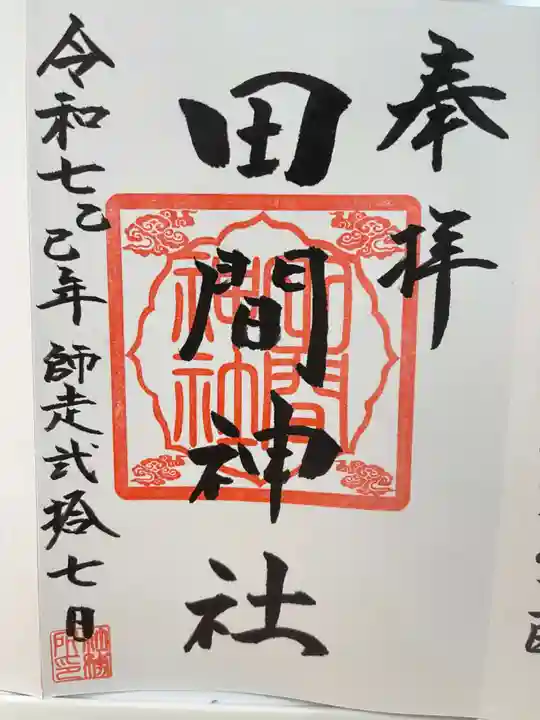 奉拝
田間神社
田間
神社
令和七乙巳年師走弐拾七日